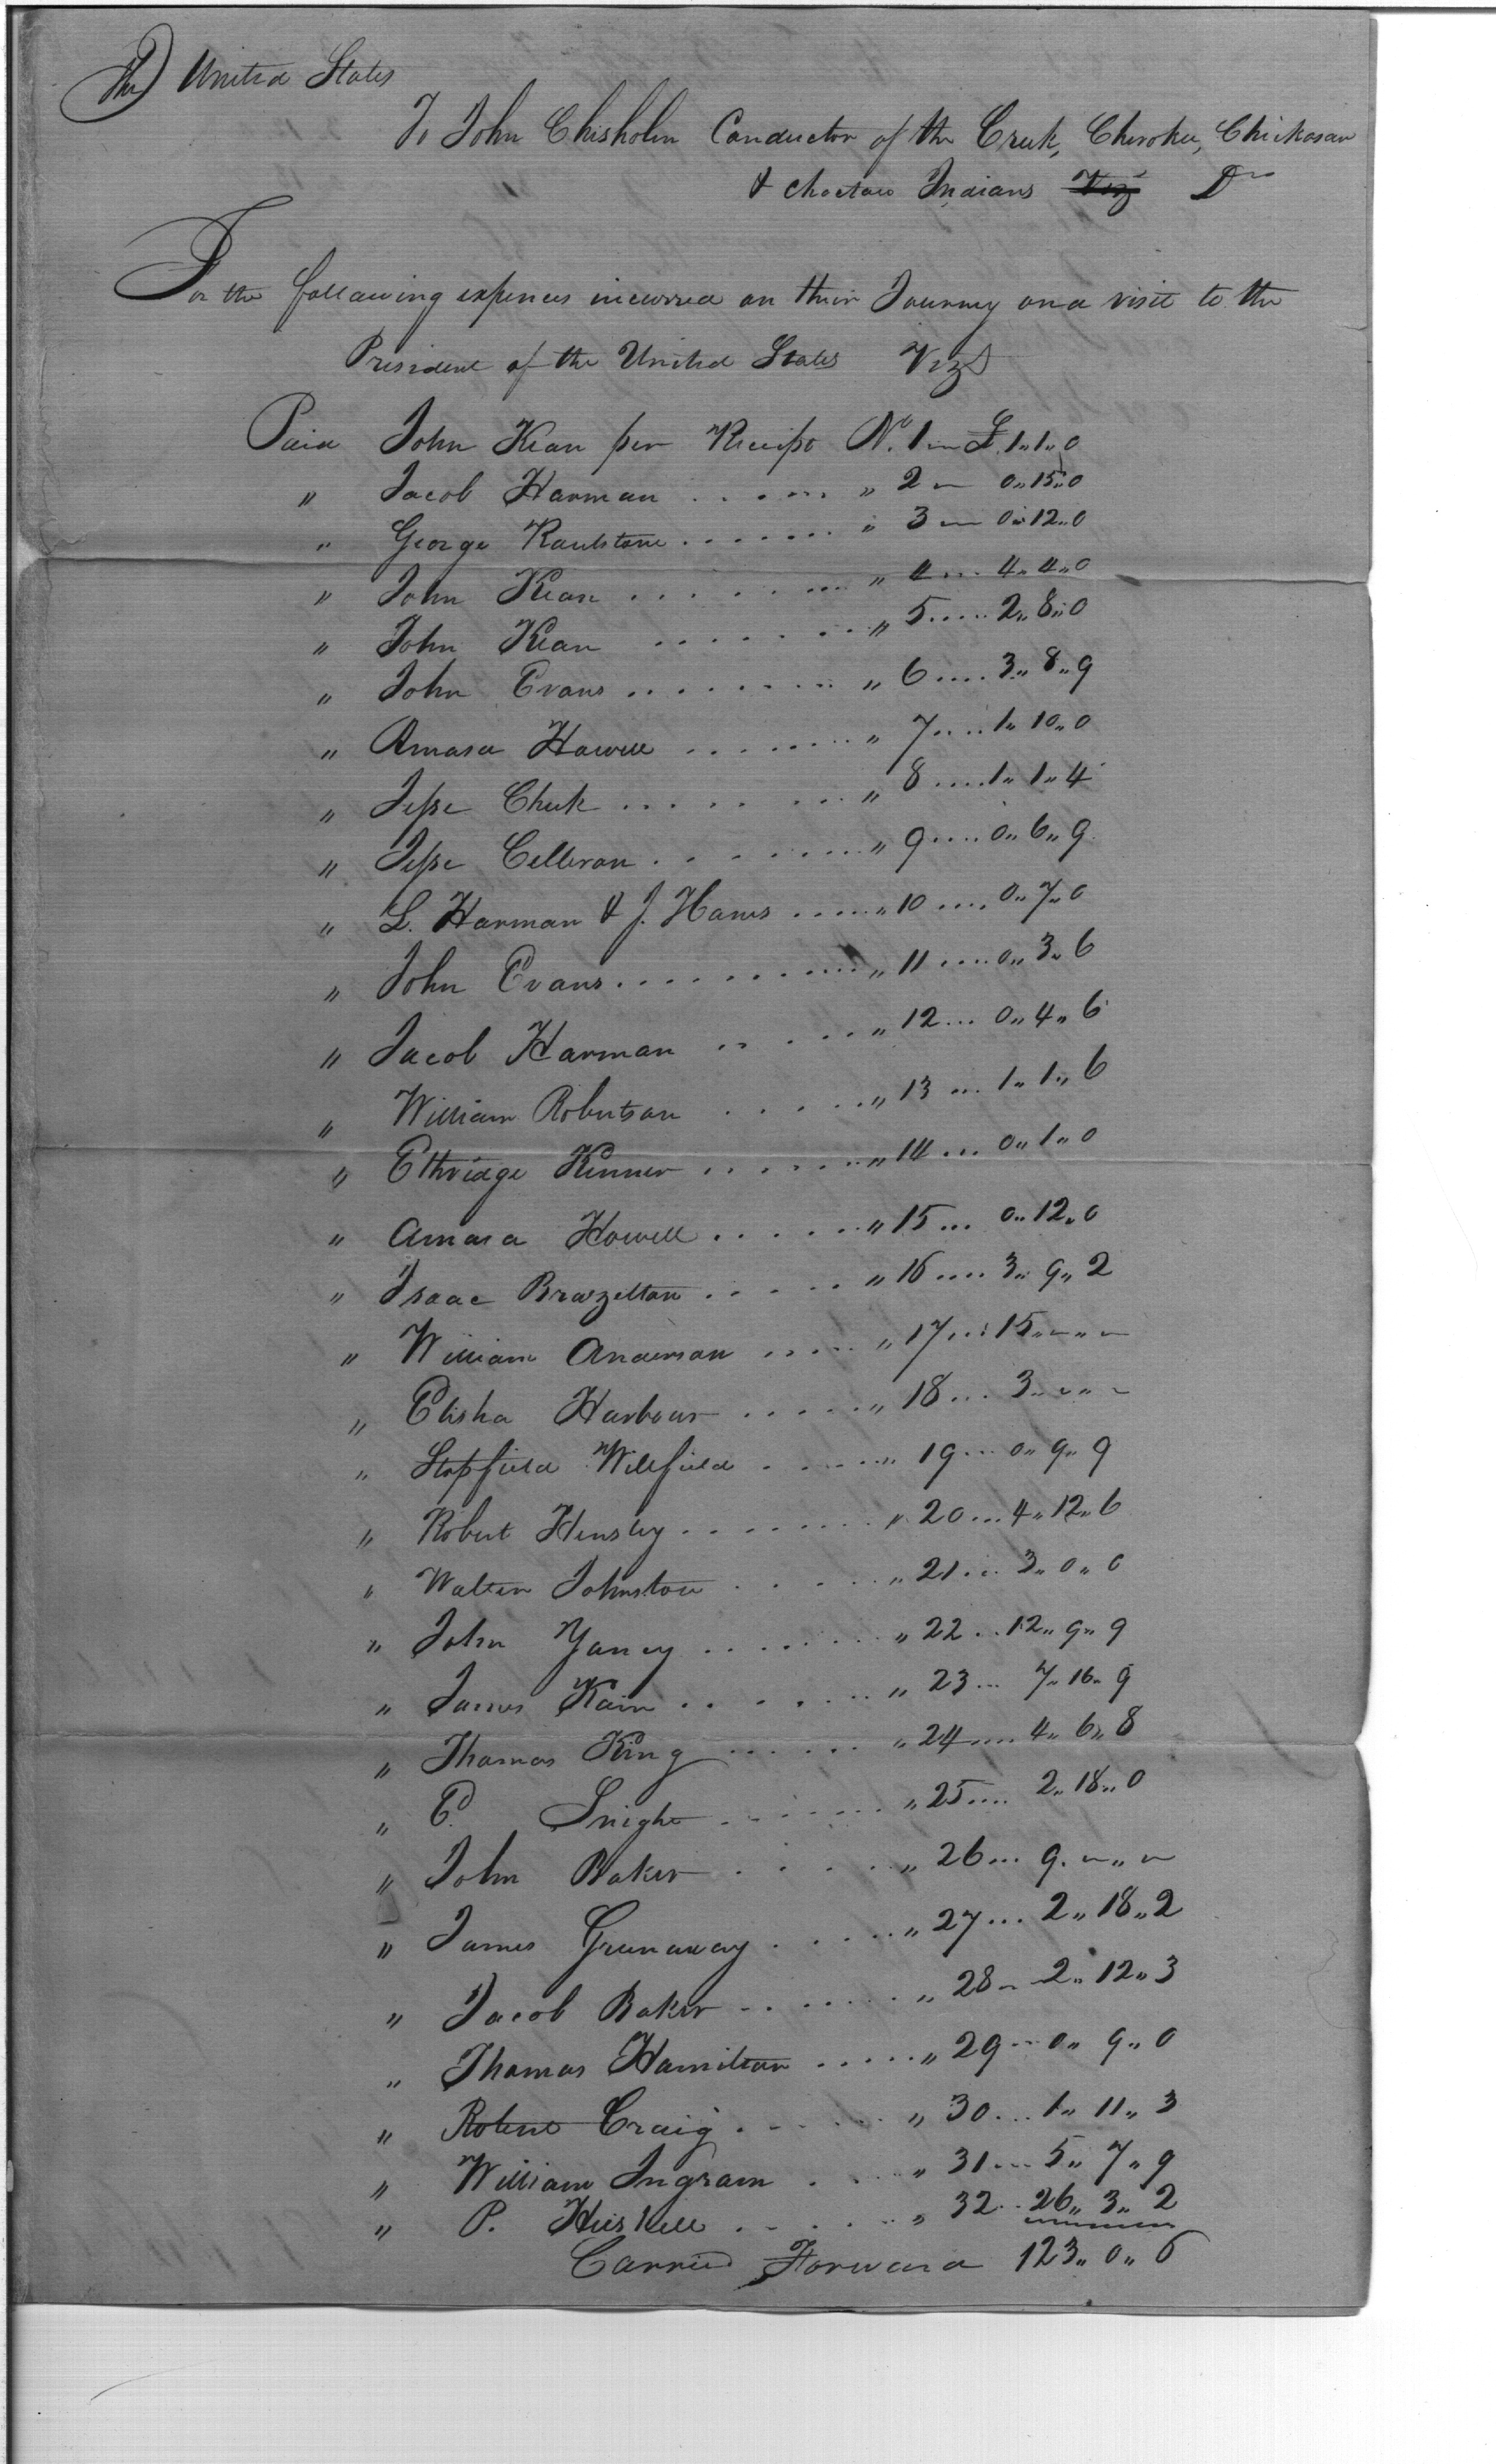 The United States
To John Chisholm Conductor of the Creek, Cherokee, Chickasaw
& Choctaw Indians Viz Dr
For the following expences incurred on their Journey on a visit to the
President of the United States Viz
Paid John Kean per Receipt No. 1 £ 1"1"0
" Jacob Harman ...... " 2 — 0"15"0
" George Raulstone ....... " 3 — 0"12"0
" John Kean ........ " 4 ... 4"4"0
" John Kean ....... " 5 ..... 2"8"0
" John Evans ........ " 6 .... 3"8"9
" Amasa Howell ....... " 7 .... 1"10"0
" Jesse Cheek ....... " 8 .... 1"1"4
" Jesse Celleron ....... " 9 .... 0"6"9
" L. Harman & J. Haws ..... " 10 .... 0"7"0
" John Evans .......... " 11 .... 0"3"6
" Jacob Harman ..... " 12 ... 0"4"6
" William Robertson ..... " 13 ... 1"1"6
" Ethridge Kenner ...... " 14 ... 0"1"0
" Amasa Howell ...... " 15 ... 0"12"0
" Isaac Brazelton ..... " 16 .... 3"9"2
" William Anderson ..... " 17 ... 15"–"–
" Elisha Harbour ..... " 18 ... 3"–"–
" Stopfield Willfield ..... " 19 ... 0"9"9
" Robert Hensley ........ " 20 ... 4"12"6
" Walter Johnston ..... " 21 ... 3"0"0
" John Yancy ....... " 22 .. 12"9"9
" James Kain ....... " 23 ... 7"16"9
" Thomas King ...... " 24 .... 4"6"8
" E. Snight ...... " 25 .... 2"18"0
" John Baker ..... " 26 ... 9"–"–
" James Greenaway ..... " 27 ... 2"18"2
" Jacob Baker ....... " 28 – 2"12"3
" Thomas Hamilton ..... " 29 ... 0"9"0
" Robert Craig ...... " 30 ... 1"11"3
" William Ingram .... " 31 ... 5"7"9
" P. Heiskell ...... " 32 .. 26"3"2
Carried Forward 123"0"6